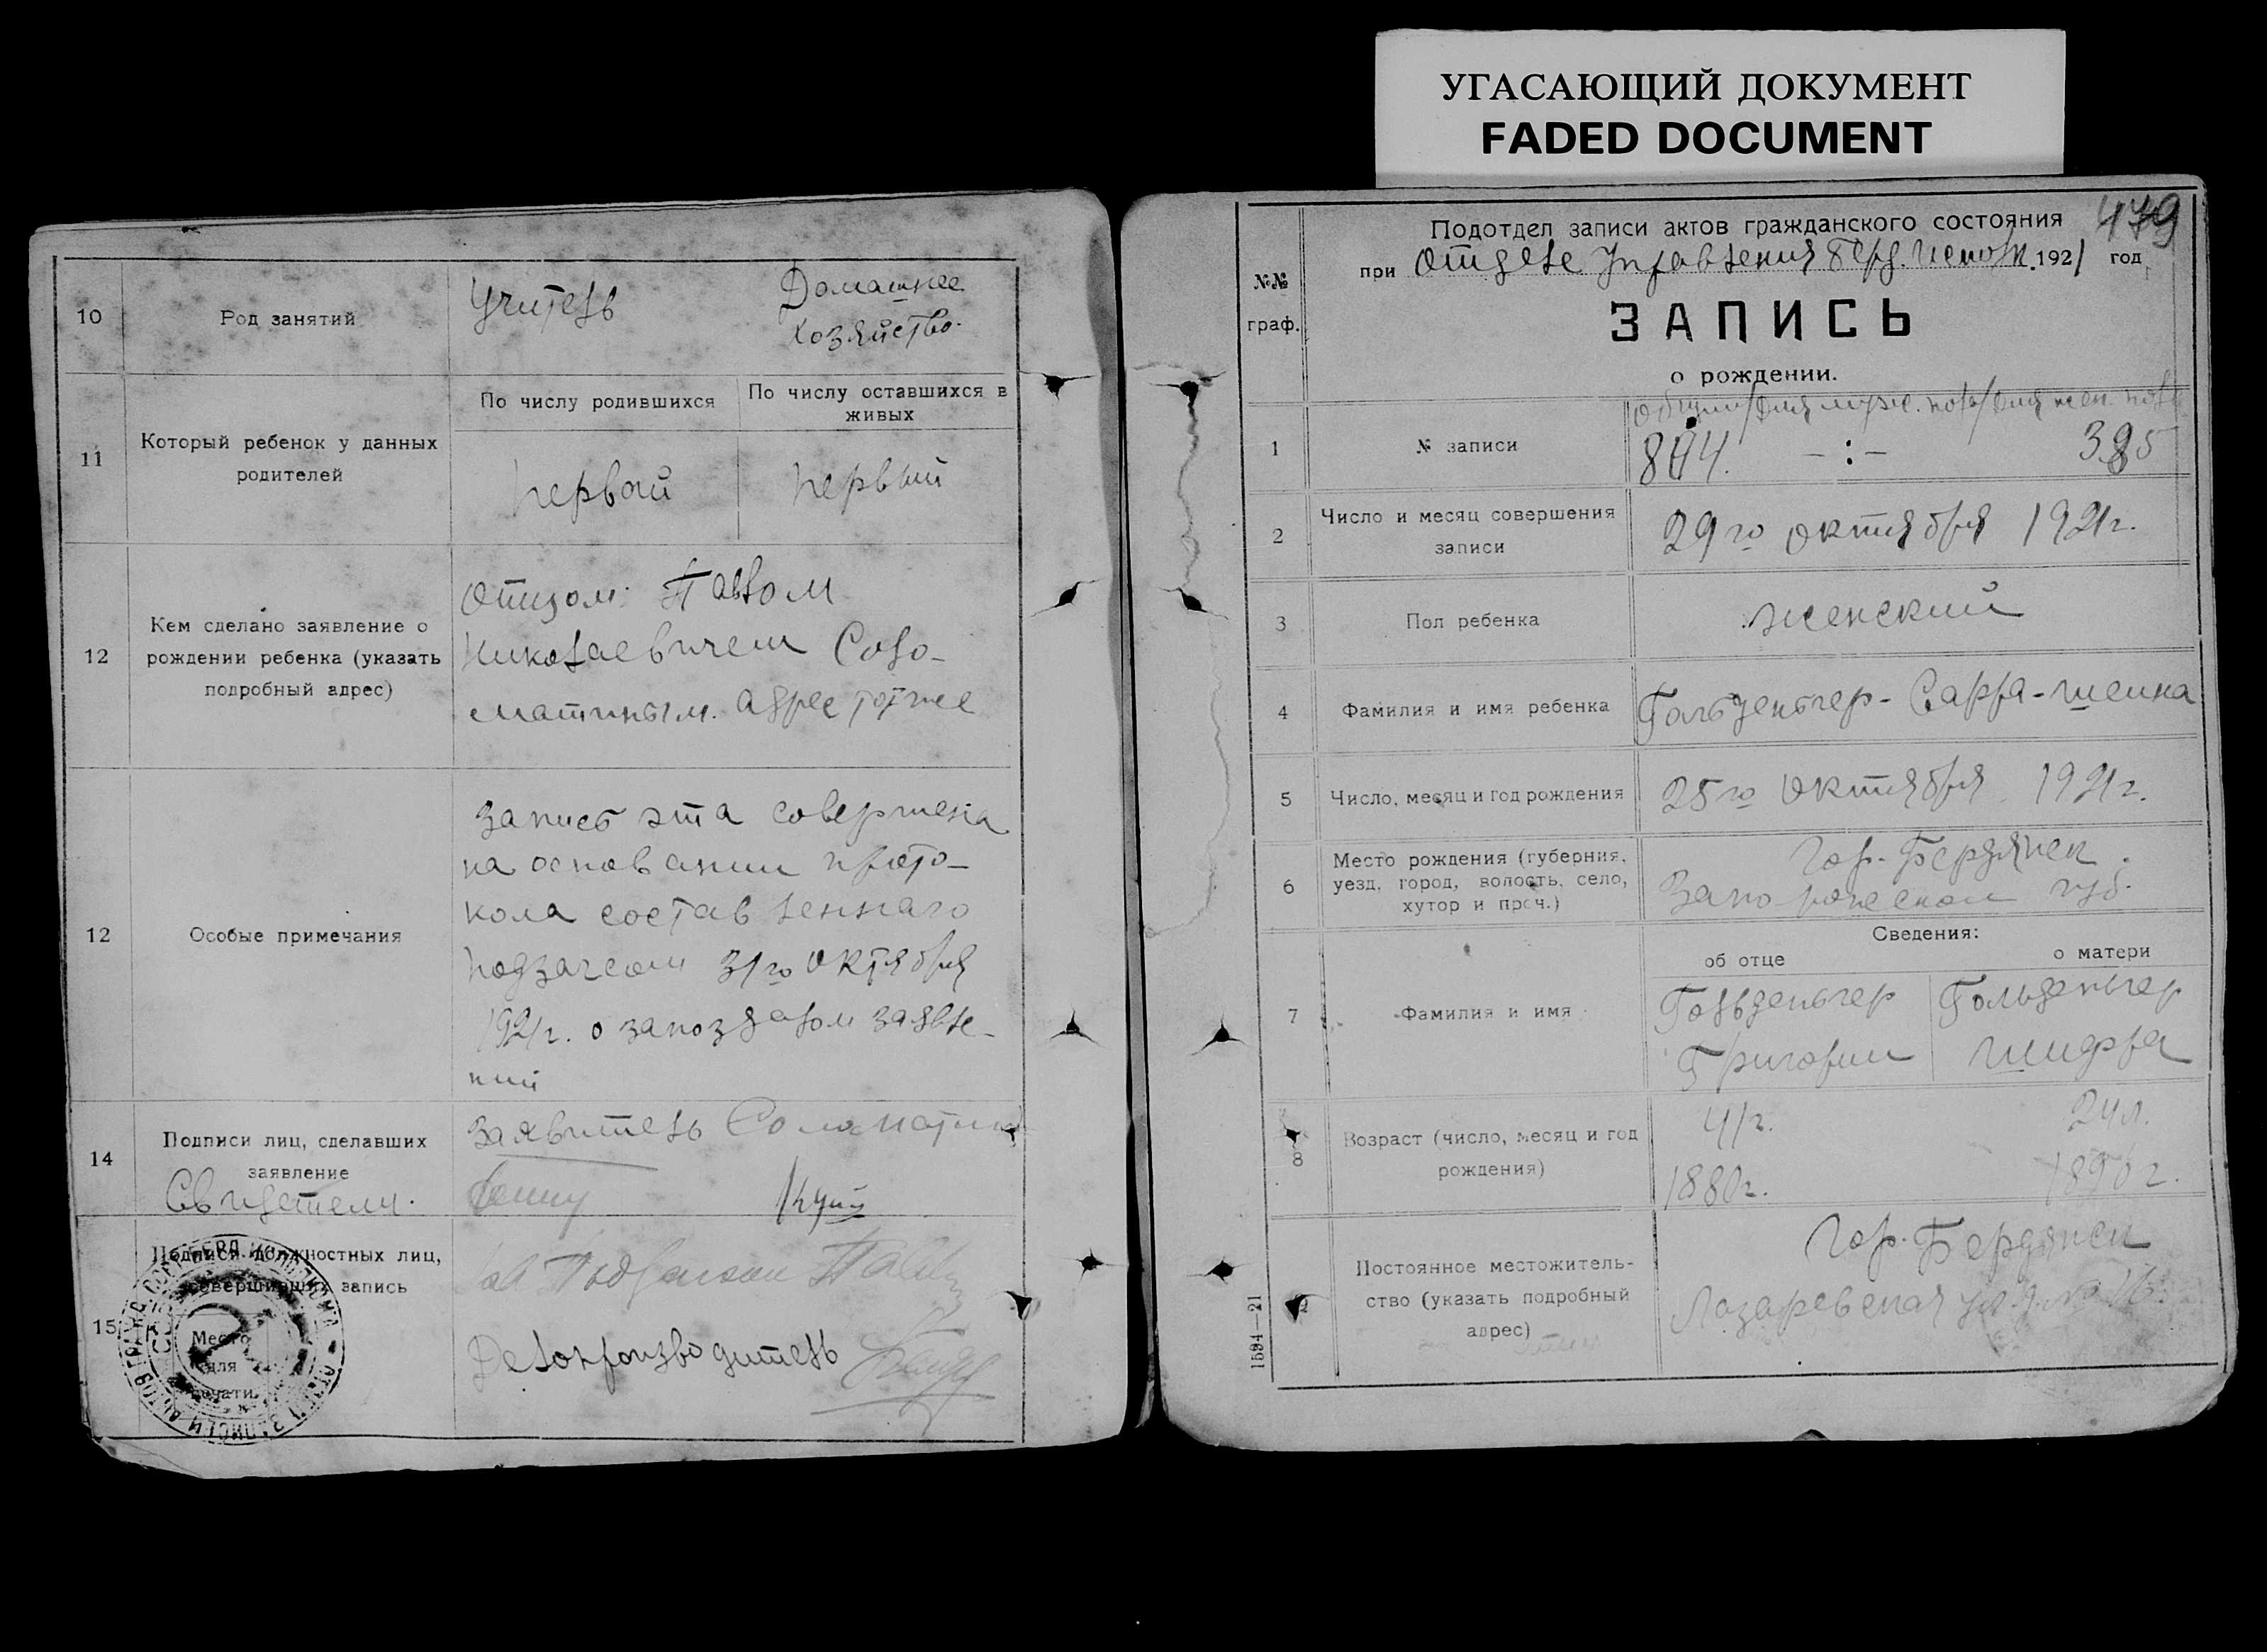 УГАСАЮЩИЙ ДОКУМЕНТ
FADED DOCUMENT
10
Род занятий
Учитель
Домашнее
хозяйство.
11
Который ребенок у данных
родителей
По числу родившихся
По числу оставшихся в
живых
первый
первый
12
Кем сделано заявление о
рождении ребенка (указать
подробный адрес)
Отцом: Павлом
Николаевичем Соло-
матиным. адрес тотже
12
Особые примечания
Запись эта совершена
на основании прото-
кола составленнаго
подзагсом 31го октября
1921г. о запоздалом заявле-
нии
14
Подписи лиц, сделавших
заявление
Свидетели.
Заявитель Соломатин
15
Подписи должностных лиц,
совершивших запись
Место
для
печати
Делопроизводитель
479
№№
граф.
Подотдел записи актов гражданского состояния
при Отделе Управления Берд. Исполк. 1921 год
ЗАПИСЬ
о рождении.
1
№ записи
общий/для муж. пола/для жен. пола
804. -:- 385
2
Число и месяц совершения
записи
29го октября 1921г.
3
Пол ребенка
женский
4
Фамилия и имя ребенка
Гольденьгер-Сарра-шейна
5
Число, месяц и год рождения
25го октября 1921г.
6
Место рождения (губерния,
уезд, город, волость, село,
хутор и проч.)
Гор. Бердянск
Запорожской губ.
Сведения:
об отце
о матери
7
Фамилия и имя
Гольденьгер
Григорий
Гольденьгер
шифра
8
Возраст (число, месяц и год
рождения)
41г.
1880г.
24л.
189 г.
9
Постоянное местожитель-
ство (указать подробный
адрес)
Гор. Бердянск
Лазаревская ул. д. №
1594—21